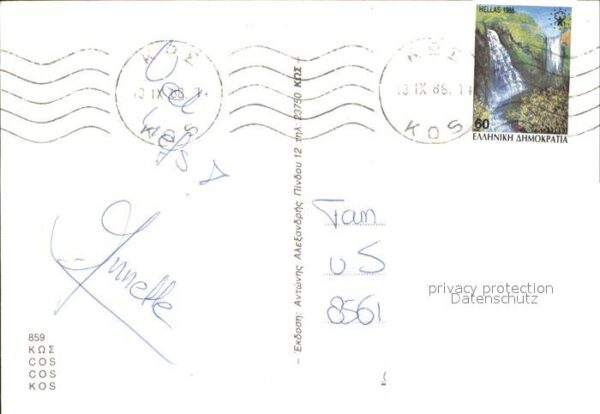 ΚΩΣ
13 IX 88. 14
KOS
ΚΩΣ
13 IX 88. 14
KOS
HELLAS 1988
60
ΕΛΛΗΝΙΚΗ ΔΗΜΟΚΡΑΤΙΑ
Annette
– Έκδοση: Αντώνης Αλεξανδρής Πίνδου 12 τηλ: 23750 ΚΩΣ –
Fam
U S
8561
privacy protection
Datenschutz
859
ΚΩΣ
COS
COS
KOS